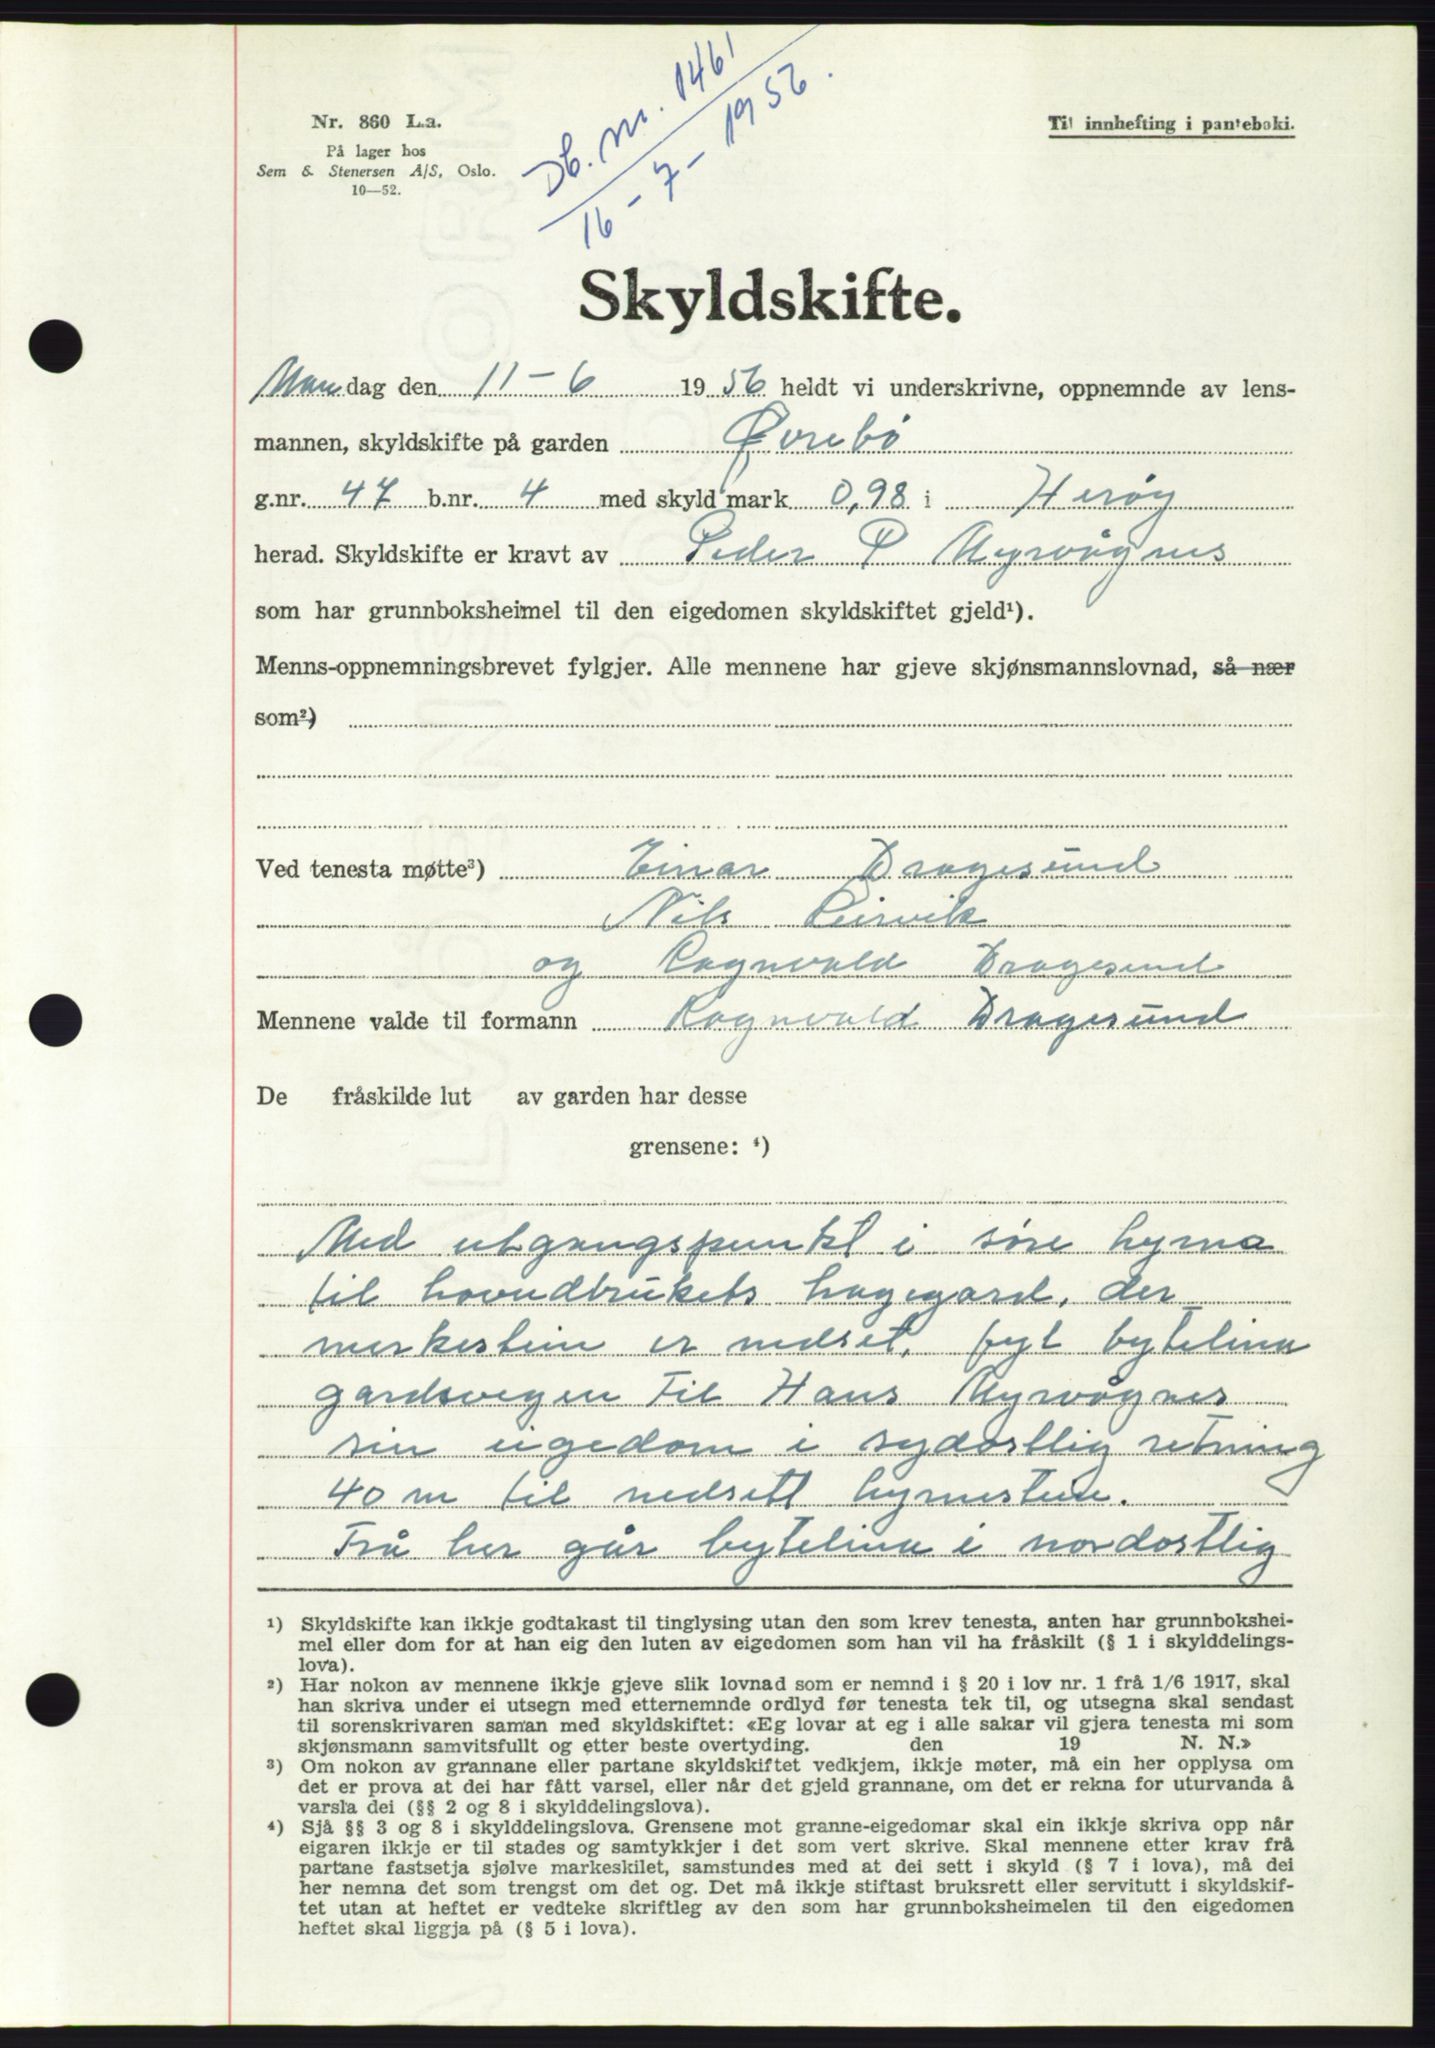 Db. nr. 1461
16 - 7 - 1956.
Nr. 860 L.a.
På lager hos
Sem & Stenersen A/S, Oslo.
10—52.
Til innhefting i panteboki.
Skyldskifte.
Mandag den 11-6 1956 heldt vi underskrivne, oppnemnde av lens-
mannen, skyldskifte på garden Øvrebø
g.nr. 47 b.nr. 4 med skyld mark 0,98 i Herøy
herad. Skyldskifte er kravt av Peder P Myrvågnes
som har grunnboksheimel til den eigedomen skyldskiftet gjeld¹).
Menns-oppnemningsbrevet fylgjer. Alle mennene har gjeve skjønsmannslovnad, så nær
som²)
Ved tenesta møtte³) Einar Dragesund
Nils Leirvik
og Ragnvald Dragesund
Mennene valde til formann Ragnvald Dragesund
De fråskilde lut av garden har desse
grensene: ⁴)
Med utgangspunkt i søre hyrna
til hovudbrukets hagegard, der
merkestein er nedset, fyl bytelina
gardsvegen til Hans Myrvågnes
sin eigedom i sydostlig retning
40 m til nedsett hyrnestein.
Frå her går bytelina i nordostlig
¹) Skyldskifte kan ikkje godtakast til tinglysing utan den som krev tenesta, anten har grunnbokshei-
mel eller dom for at han eig den luten av eigedomen som han vil ha fråskilt (§ 1 i skylddelings-
lova).
²) Har nokon av mennene ikkje gjeve slik lovnad som er nemnd i § 20 i lov nr. 1 frå 1/6 1917, skal
han skriva under ei utsegn med etternemnde ordlyd før tenesta tek til, og utsegna skal sendast
til sorenskrivaren saman med skyldskiftet: «Eg lovar at eg i alle sakar vil gjera tenesta mi som
skjønsmann samvitsfullt og etter beste overtyding. den 19 N. N.»
³) Om nokon av grannane eller partane skyldskiftet vedkjem, ikkje møter, må ein her opplysa om
det er prova at dei har fått varsel, eller når det gjeld grannane, om det er rekna for uturvanda å
varsla dei (§§ 2 og 8 i skylddelingslova).
⁴) Sjå §§ 3 og 8 i skylddelingslova. Grensene mot granne-eigedomar skal ein ikkje skriva opp når
eigaren ikkje er til stades og samtykkjer i det som vert skrive. Skal mennene etter krav frå
partane fastsetja sjølve markeskilet, samstundes med at dei sett i skyld (§ 7 i lova), må dei
her nemna det som trengst om det og. Det må ikkje stiftast bruksrett eller servitutt i skyldskif-
tet utan at heftet er vedteke skriftleg av den som har grunnboksheimelen til den eigedomen
heftet skal liggja på (§ 5 i lova).